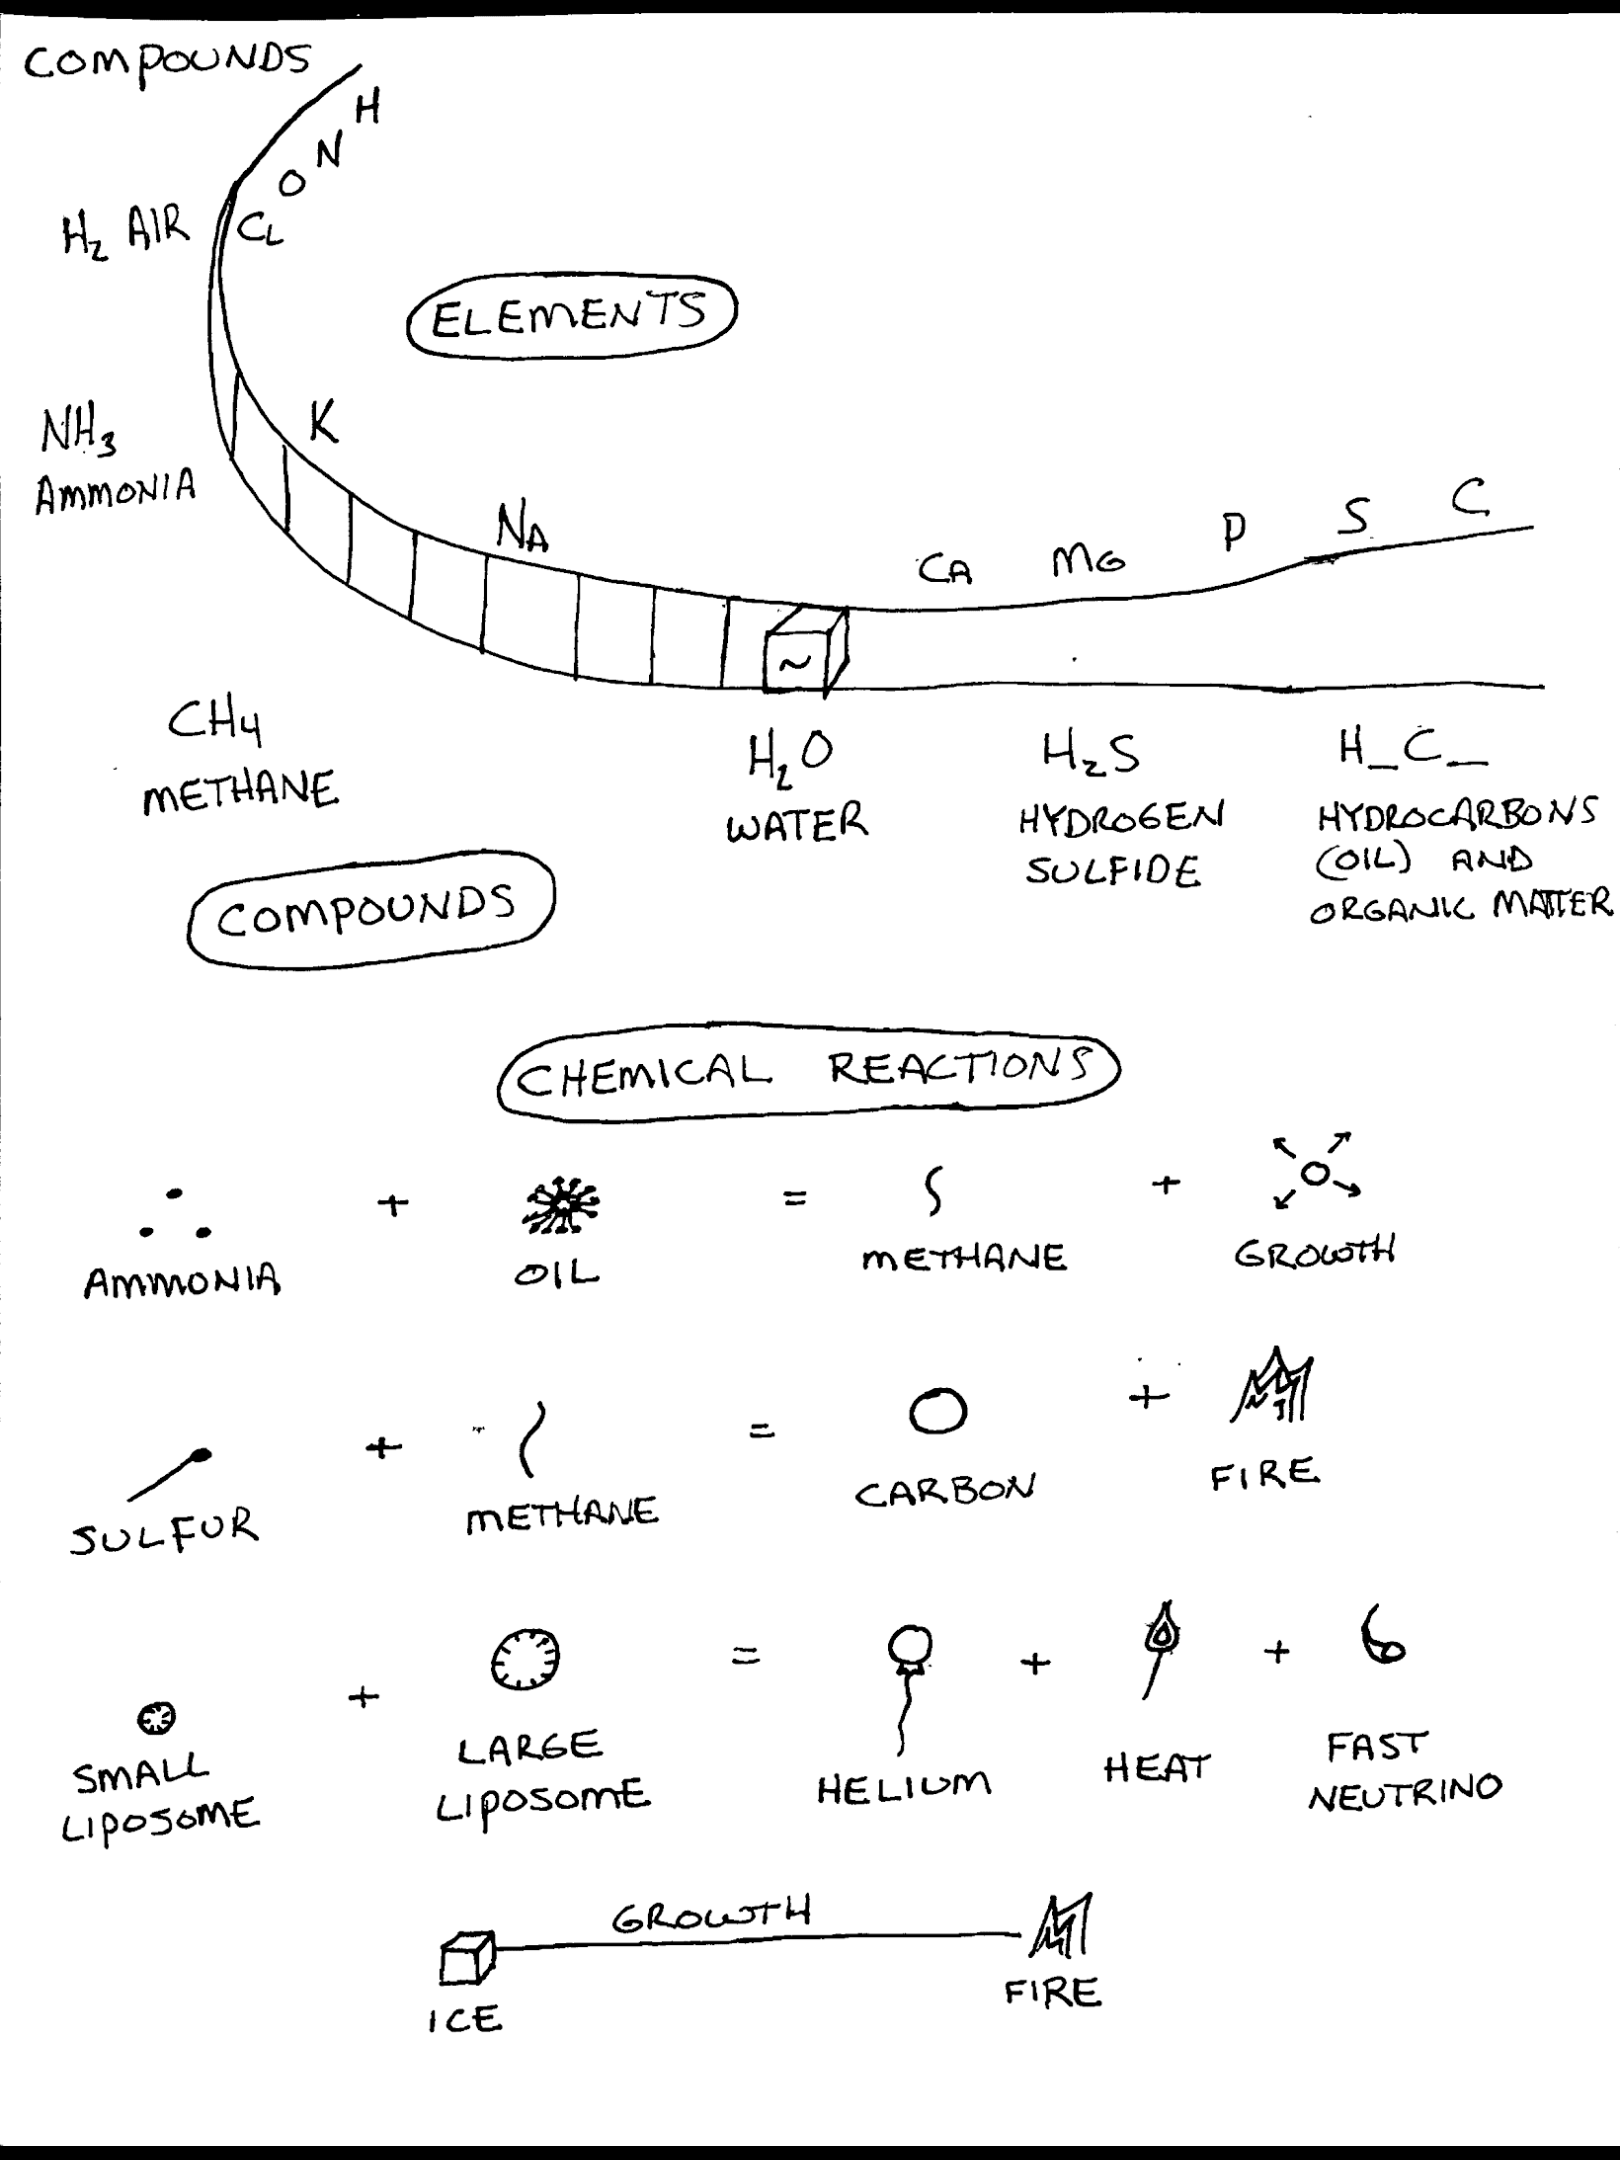 COMPOUNDS
H
N
O
CL
H2 AIR
ELEMENTS
K
NH3
AMMONIA
NA
CA MG P S C
~
CH4
METHANE
H2O
WATER
H2S
HYDROGEN
SULFIDE
H_C_
HYDROCARBONS
(OIL) AND
ORGANIC MATTER
COMPOUNDS
CHEMICAL REACTIONS
+ = +
AMMONIA OIL METHANE GROWTH
+ = +
SULFUR METHANE CARBON FIRE
+ = + +
SMALL
LIPOSOME
LARGE
LIPOSOME
HELIUM
HEAT
FAST
NEUTRINO
GROWTH
ICE
FIRE